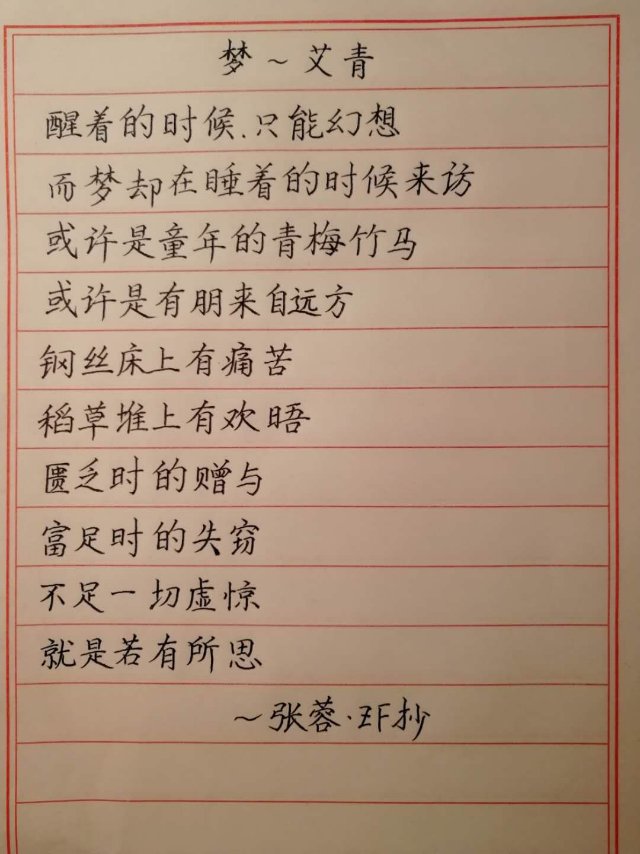 梦~艾青
醒着的时候.只能幻想
而梦却在睡着的时候来访
或许是童年的青梅竹马
或许是有朋来自远方
钢丝床上有痛苦
稻草堆上有欢晤
匮乏时的赠与
富足时的失窃
不足一切虚惊
就是若有所思
~张蓉·ZF抄